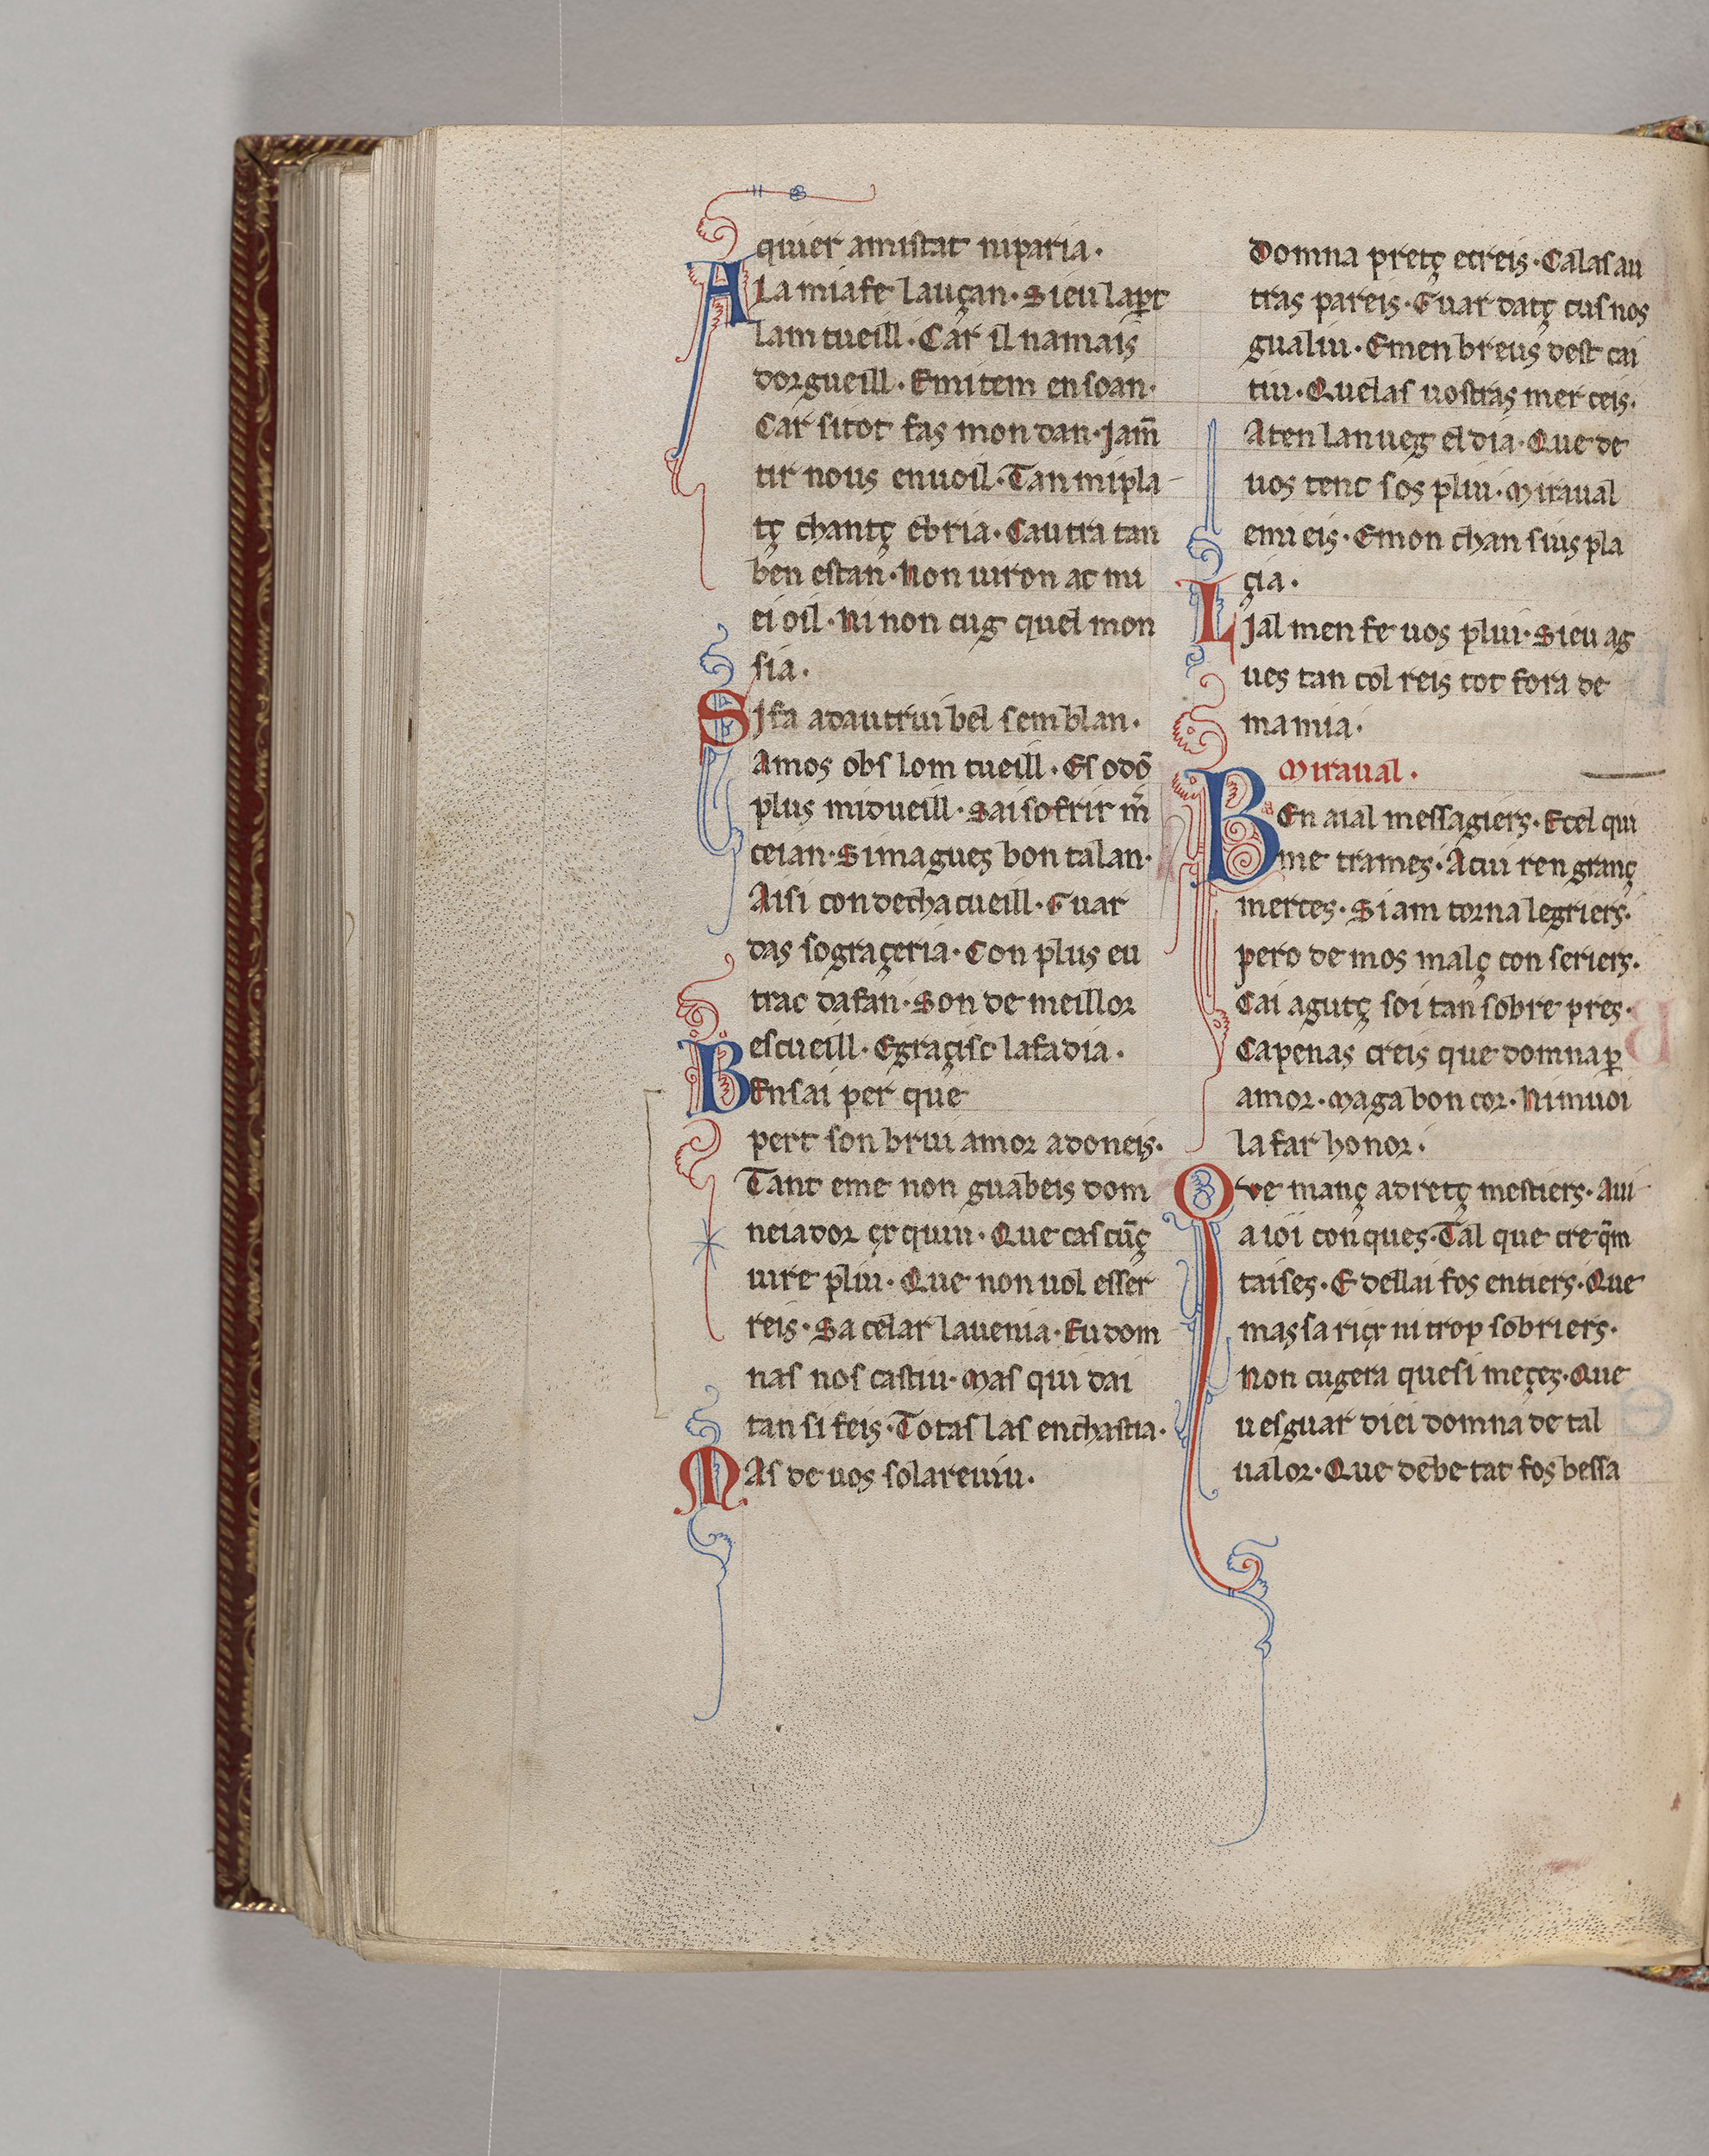 quier amistat niparia.
A la mia fe lauçan. Sieu lapt
lam cueill. Car il namais
dorgueill. Emitem en soan.
Car sitot fas mon dan. jam̃
tir nous enuoil. Tan mi pla
tç chantç ebria. Cautra tan
ben estan. Non uiron ac mi
ei oil. Ni non cug quel mon
sia.
Sj fa adautrui bel semblan.
Amos obs lom cueill. Es odõ
plus mi dueill. Sai sofrir m̃
ceian. Simagues bon talan.
Aisi con decha cueill. Guar
das so graçeria. Con plus eu
trac dafan. Son de meillor
escueill. Egraçisc lafadia.
BEn sai per que
pert son brui amor adoneis.
Tant eme non guabeis dom
neiador çr quiu. Que cascũç
uire pliu. Que non uol esser
reis. Sa celar lauenia. Eu dom
nas nos castiu. Mas qui dai
tan si feis. Totas las enchastia.
MAs de uos sola reuiu.
domna pretç ecreis. Calas au
tras pareis. Guar datç cus nos
gualiu. Emen breus dest cai
tiu. Quelas uostras mer ceis.
Aten la nueg el dia. Que de
uos tenc sos pliu. Miraual
emi eis. Emon chan sius pla
çia.
Ljal men fe uos pliui. Sieu ag
ues tan col reis tot fora de
ma mia.
Miraual.
BEn aial messagiers. Ecel qui
me trames. Acui ren granç
merces. Siam torna legriers.
pero de mos malç con seriers.
Cai agutç soi tan sobre pres.
Capenas creis que domna ꝑ
amor. Maga bon cor. Nimuoi
la far honor.
Que manç adretç mestiers. Aui
a ioi conques. Tal que cre q̃m
taises. E dellai fos entiers. Que
mas sa riçr ni trop sobriers.
Non cugera quesi meçes. Que
ues guar diei domna de tal
ualor. Que debe tat fos bessa